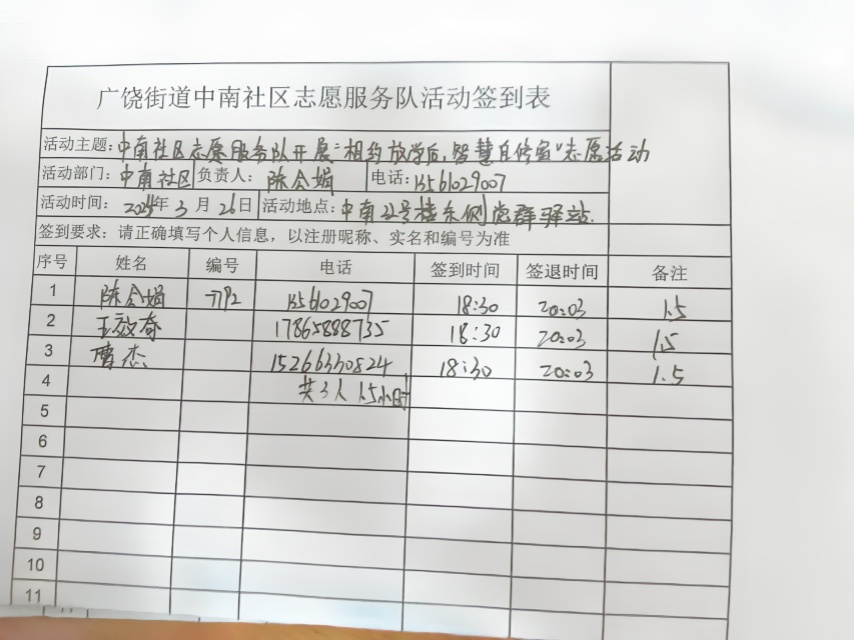 广饶街道中南社区志愿服务队活动签到表
活动主题:中南社区志愿服务队开展"相约放学后,智慧自修室"志愿活动
活动部门:中南社区 负责人: 陈会娟 电话:13561029007
活动时间: 2024年3月26日 活动地点:中南22号楼东侧党群驿站.
签到要求:请正确填写个人信息,以注册昵称、实名和编号为准
序号 姓名 编号 电话 签到时间 签退时间 备注
1 陈会娟 13561029007 18:30 20:03 1.5
2 王效奇 17865888735 18:30 20:03 1.5
3 曹杰 15266330824 18:30 20:03 1.5
4 共3人 1.5小时
5
6
7
8
9
10
11